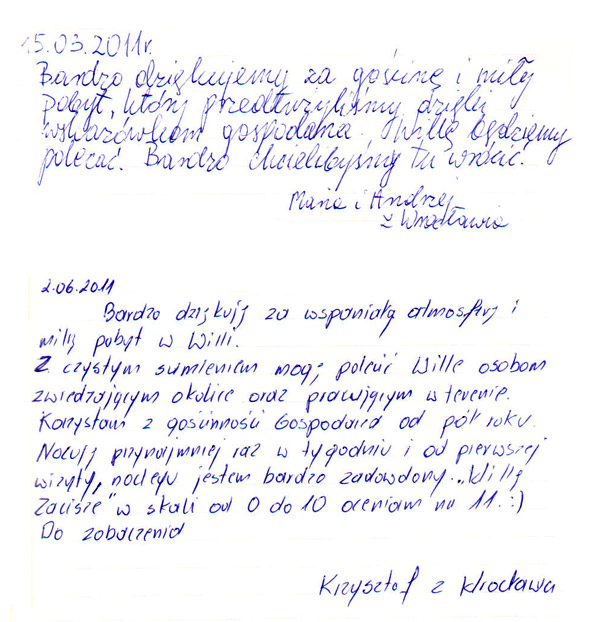 15.03.2011r.
Bardzo dziękujemy za gościnę i miły
pobyt, który przedłużyliśmy dzięki
wskazówkom gospodarza. Willę będziemy
polecać. Bardzo chcielibyśmy tu wrócić.
Maria i Andrzej
z Wrocławia
2.06.2011
Bardzo dziękuję za wspaniałą atmosferę i
miły pobyt w Willi.
Z czystym sumieniem mogę polecić Wille osobom
zwiedzającym okolice oraz pracującym w terenie.
Korzystam z gościnności Gospodarza od pół roku.
Nocuję przynajmniej raz w tygodniu i od pierwszej
wizyty, noclegu jestem bardzo zadowolony. „Willę
Zacisze" w skali od 0 do 10 oceniam na 11. :)
Do zobaczenia
Krzysztof z Wrocławia